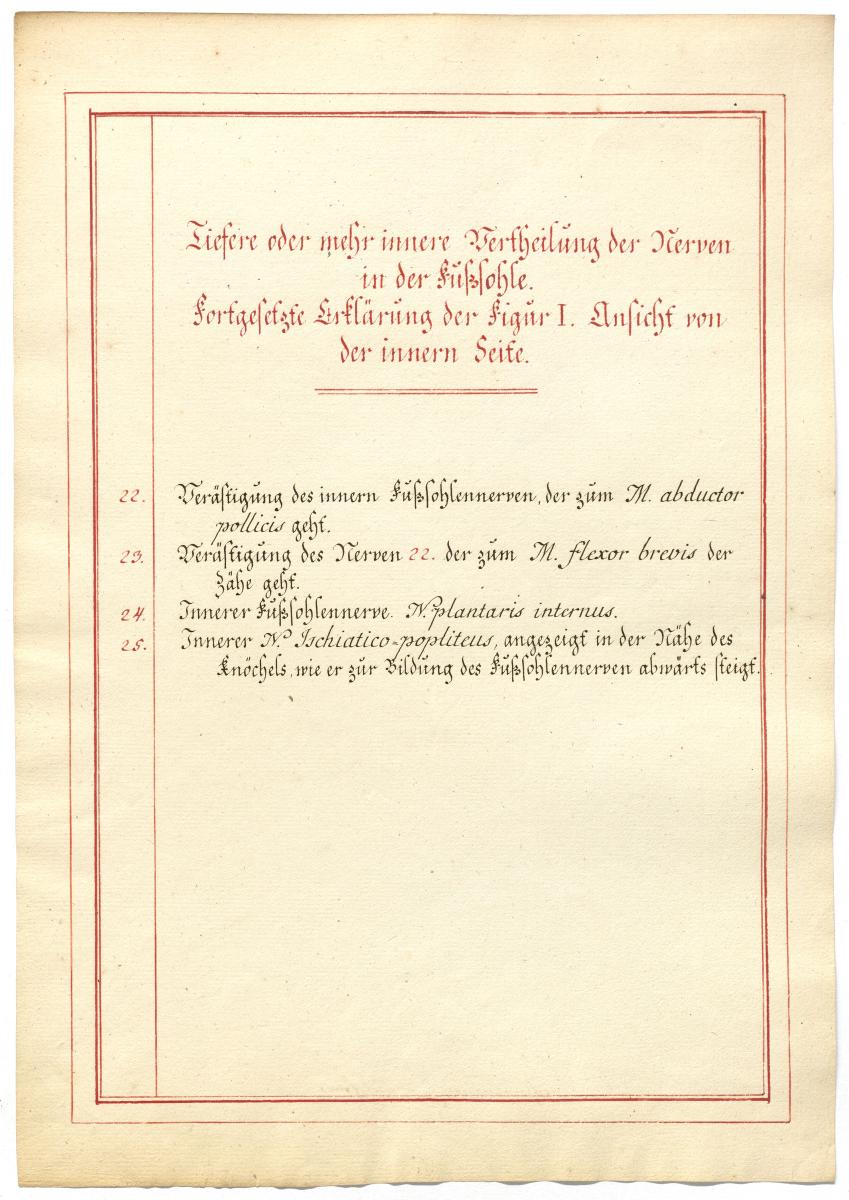 Tiefere oder mehr innere Vertheilung der Nerven
in der Fußsohle.
Fortgesetzte Erklärung der Figur I. Ansicht von
der innern Seite.
22. Verästigung des innern Fußsohlennerven, der zum M. abductor
pollicis geht.
23. Verästigung des Nerven 22. der zum M. flexor brevis der
Zähe geht.
24. Innerer Fußsohlennerve. N. plantaris internus.
25. Innerer N. Ischiatico-popliteus, angezeigt in der Nähe des
Knöchels, wie er zur Bildung des Fußsohlennerven abwärts steigt.